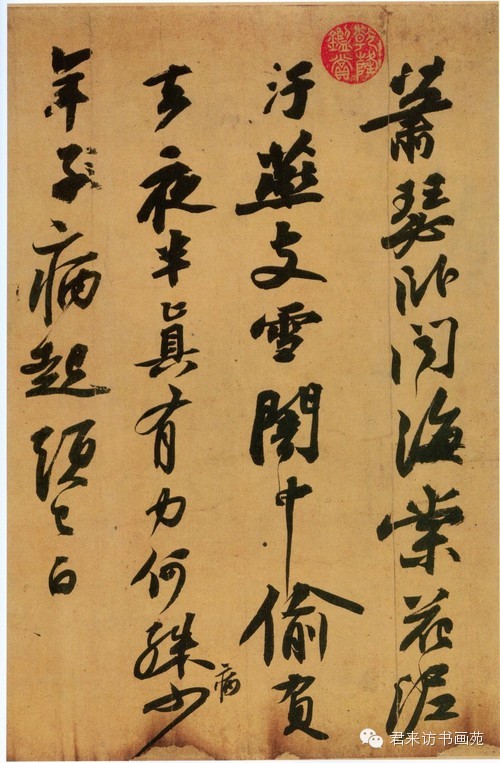 蕭瑟臥聞海棠花泥
汙燕支雪闇中偷負
去夜半真有力何殊病少
年子病起頭已白
乾隆鑑賞
君来访书画苑